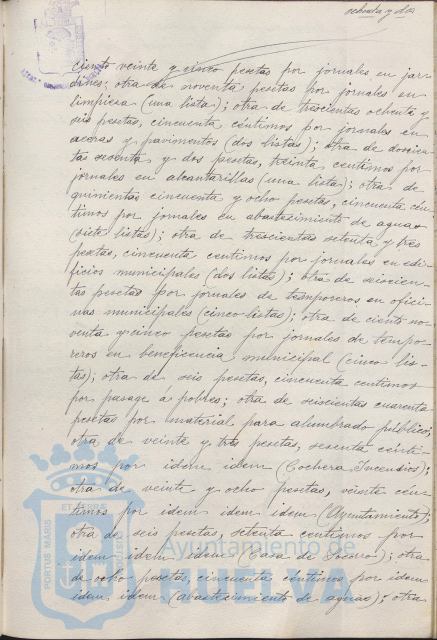 ochenta y dos
ciento veinte y cinco pesetas por jornales en jar-
dines; otra de noventa pesetas por jornales en
limpieza (una lista); otra de trescientas ochenta y
seis pesetas, cincuenta céntimos por jornales en
aceras y pavimentos (dos listas); otra de doscien-
tas sesenta y dos pesetas, treinta centimos por
jornales en alcantarillas (una lista); otra de
quinientas cincuenta y ocho pesetas, cincuenta cén-
timos por jornales en abastecimiento de aguas
(siete listas); otra de trescientas setenta y tres
pesetas, cincuenta centimos por jornales en edi-
ficios municipales (dos listas); otra de seiscien-
tas pesetas por jornales de temporeros en ofici-
nas municipales (cinco listas); otra de ciento no-
venta y cinco pesetas por jornales de tempo-
reros en beneficencia municipal (cinco lis-
tas); otra de seis pesetas, cincuenta centimos
por pasage a pobres; otra de seiscientas cuarenta
pesetas por material para alumbrado público;
otra de veinte y tres pesetas, sesenta centi-
mos por idem idem (Cochera Incendios);
otra de veinte y ocho pesetas, veinte cén-
timos por idem idem idem (Ayuntamiento);
otra de seis pesetas, setenta centimos por
idem idem idem (Casa de Socorro); otra
de ocho pesetas, cincuenta centimos por idem
idem idem (abastecimiento de aguas); otra
PORTUS MARIS
ET
Ayuntamiento de
HUELVA